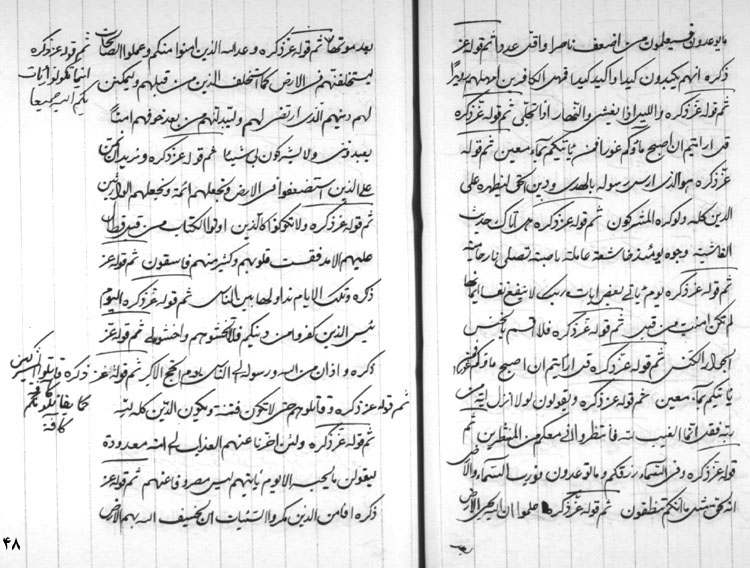 ما يوعدون فسيعلمون من اضعف ناصرا واقل عددا ثم قوله عز
ذكره انهم يكيدون كيدا واكيد كيدا فمهل الكافرين امهلهم رويدا
ثم قوله عز ذكره والليل اذا يغشى والنهار اذا تجلى ثم قوله عز ذكره
قل ارايتم ان اصبح ماؤكم غورا فمن ياتيكم بماء معين ثم قوله
عز ذكره هو الذي ارسل رسوله بالهدى ودين الحق ليظهره على
الدين كله ولو كره المشركون ثم قوله عز ذكره هل اتاك حديث
الغاشية وجوه يومئذ خاشعة عاملة ناصبة تصلى نارا حامية
ثم قوله عز ذكره يوم ياتي بعض ايات ربك لا ينفع نفسا ايمانها
لم تكن امنت من قبل ثم قوله عز ذكره فلا اقسم بالخنس
الجوار الكنس ثم قوله عز ذكره قل ارايتم ان اصبح ماؤكم غورا فمن
ياتيكم بماء معين ثم قوله عز ذكره ويقولون لولا انزل اية من
ربه فقل انما الغيب لله فانتظروا اني معكم من المنتظرين ثم
قوله عز ذكره وفي السماء رزقكم وما توعدون فورب السماء والارض
انه لحق مثل ما انكم تنطقون ثم قوله عز ذكره اعلموا ان الله يحيي الارض
بعد موتها ثم قوله عز ذكره وعد الله الذين امنوا منكم وعملوا الصالحات
ليستخلفنهم في الارض كما استخلف الذين من قبلهم وليمكنن
لهم دينهم الذي ارتضى لهم وليبدلنهم من بعد خوفهم امنا
يعبدونني ولا يشركون بي شيئا ثم قوله عز ذكره ونريد ان نمن
على الذين استضعفوا في الارض ونجعلهم ائمة ونجعلهم الوارثين
ثم قوله عز ذكره ولا تكونوا كالذين اوتوا الكتاب من قبل فطال
عليهم الامد فقست قلوبهم وكثير منهم فاسقون ثم قوله عز
ذكره وتلك الايام نداولها بين الناس ثم قوله عز ذكره اليوم
يئس الذين كفروا من دينكم فلا تخشوهم واخشوني ثم قوله عز
ذكره واذان من الله ورسوله الى الناس يوم الحج الاكبر ثم قوله عز ذكره قاتلوا المشركين
ثم قوله عز ذكره وقاتلوهم حتى لا تكون فتنة ويكون الدين كله لله
ثم قوله عز ذكره ولئن اخرنا عنهم العذاب الى امة معدودة
ليقولن ما يحبسه الا يوم ياتيهم ليس مصروفا عنهم ثم قوله عز
ذكره افامن الذين مكروا السيئات ان يخسف الله بهم الارض
ثم قوله عز ذكره
اينما تكونوا يات
بكم الله جميعا
كما يقاتلونكم
كافة
۴۸